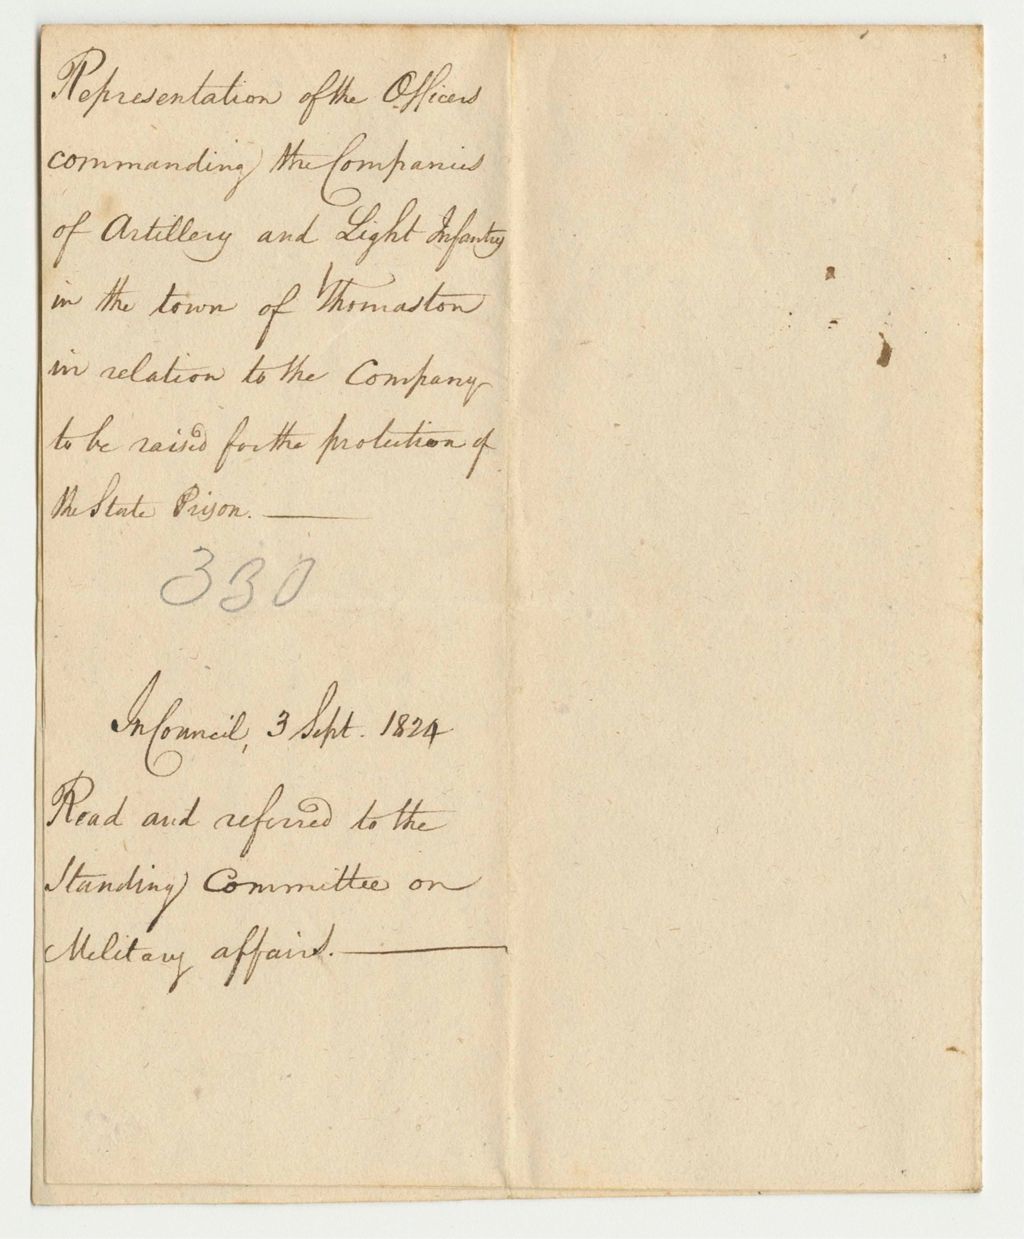 Representation of the Officers
commanding the Companies
of Artillery and Light Infantry
in the town of Thomaston
in relation to the Company
to be raised for the protection of
the State Prison.
330
In Council, 3 Sept. 1824
Read and referred to the
Standing Committee on
Military affairs.